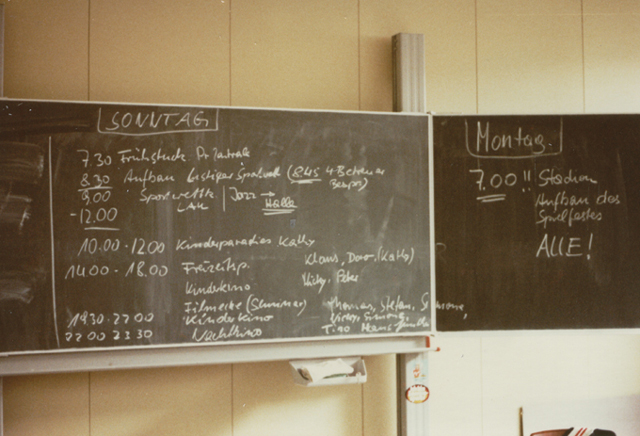 SONNTAG
7 30 Frühstück Prizentrale
8.30 Aufbau lustiger Sportwettk (8.45 4 Betreuer
9.00 Sportwettk | Jazz → Halle
-12.00
10.00-12.00 Kinderparadies Kathy
14.00-18.00 Freizeitsp. Klaus, Doro, (Kathy)
Kinderkino Vicky, Peter
Filmecke (Seminar) Thomas, Stefan,
19.30-22.00 Kinderkino Vicky, Simone,
22.00 23.30 Nachtkino Tigo
Montag.
7.00!! Stadion
Aufbau des
Spielfestes
ALLE!